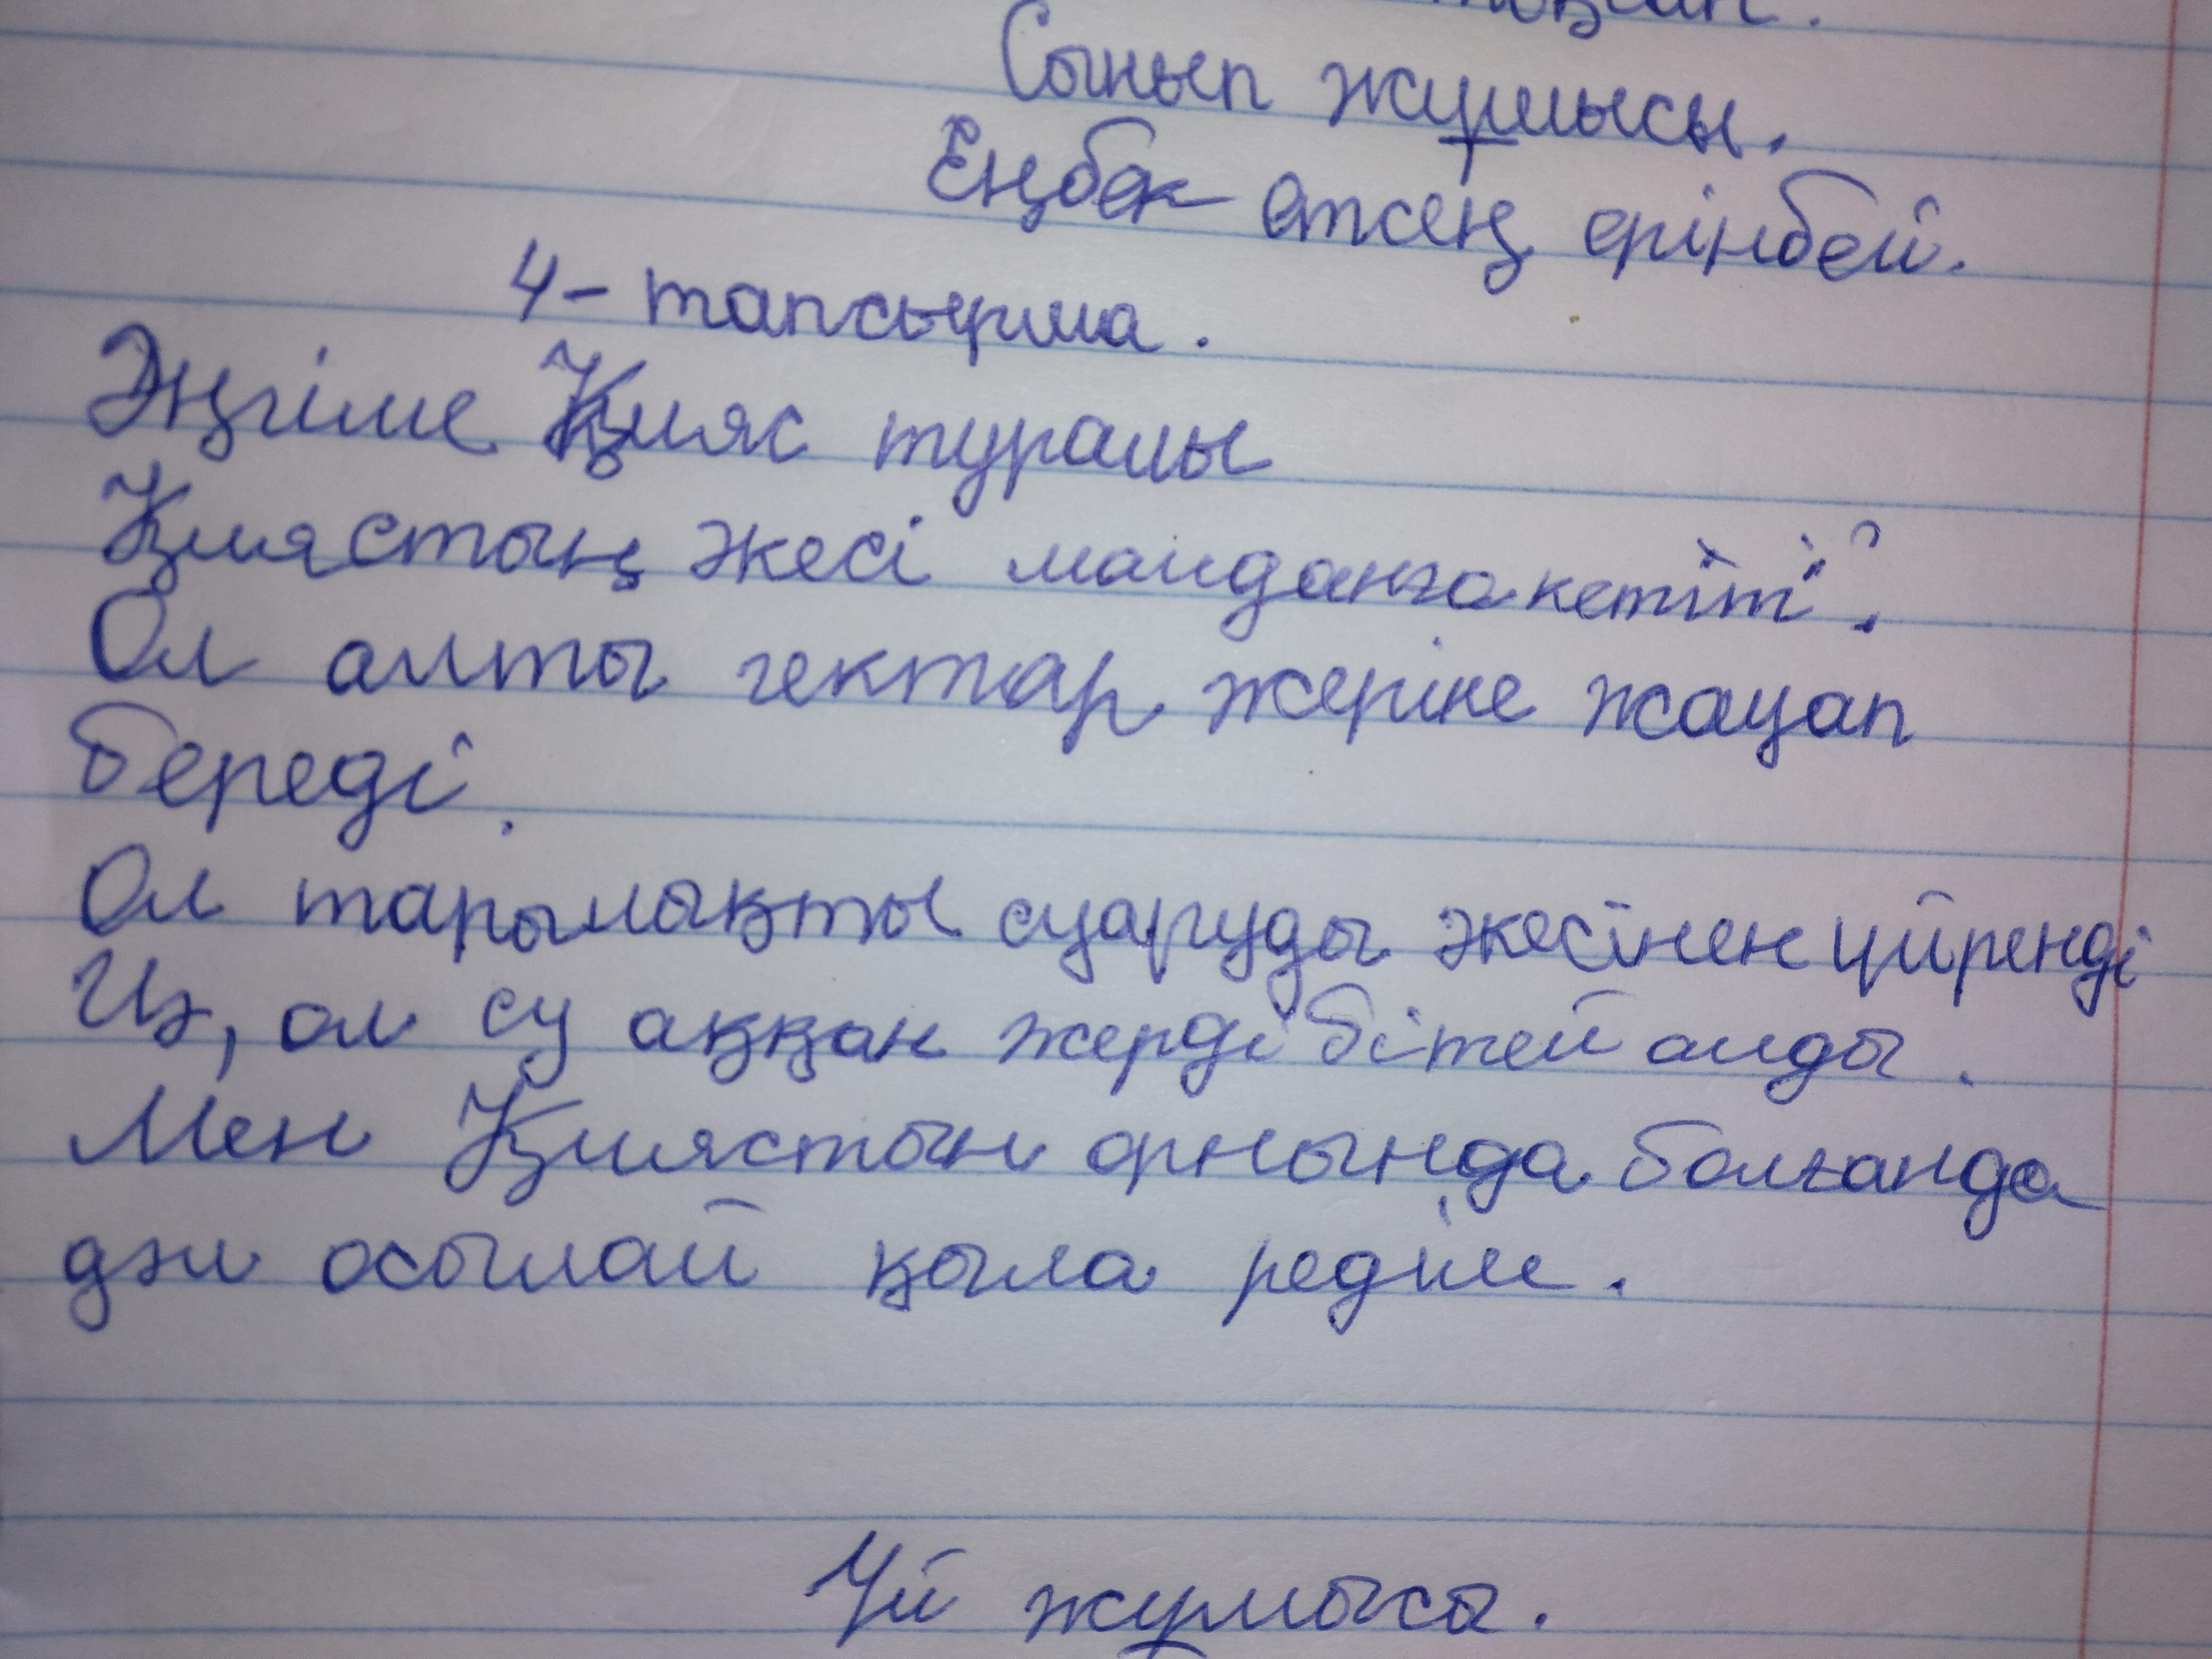 Сынып жұмысы.
Еңбек етсең ерінбей.
4-тапсырма.
Әңгіме Қияс туралы
Қиястың әкесі майданға кетіті?
Ол алты гектар жеріне жауап
береді.
Ол тарылақты суаруды әкесінен үйренді
Иә, ол су аққан жерді бітей алды.
Мен Қиястын орнында болғанда
дәл осылай қыла редім.
Үй жұмысы.